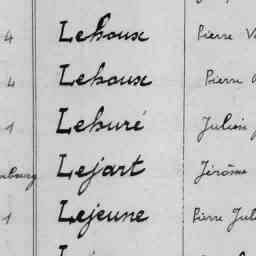 4 Lehoux Pierre V
4 Lehoux Pierre
1 Lehuré Julien
Lejart Jérôme
1 Lejeune Pierre Jul